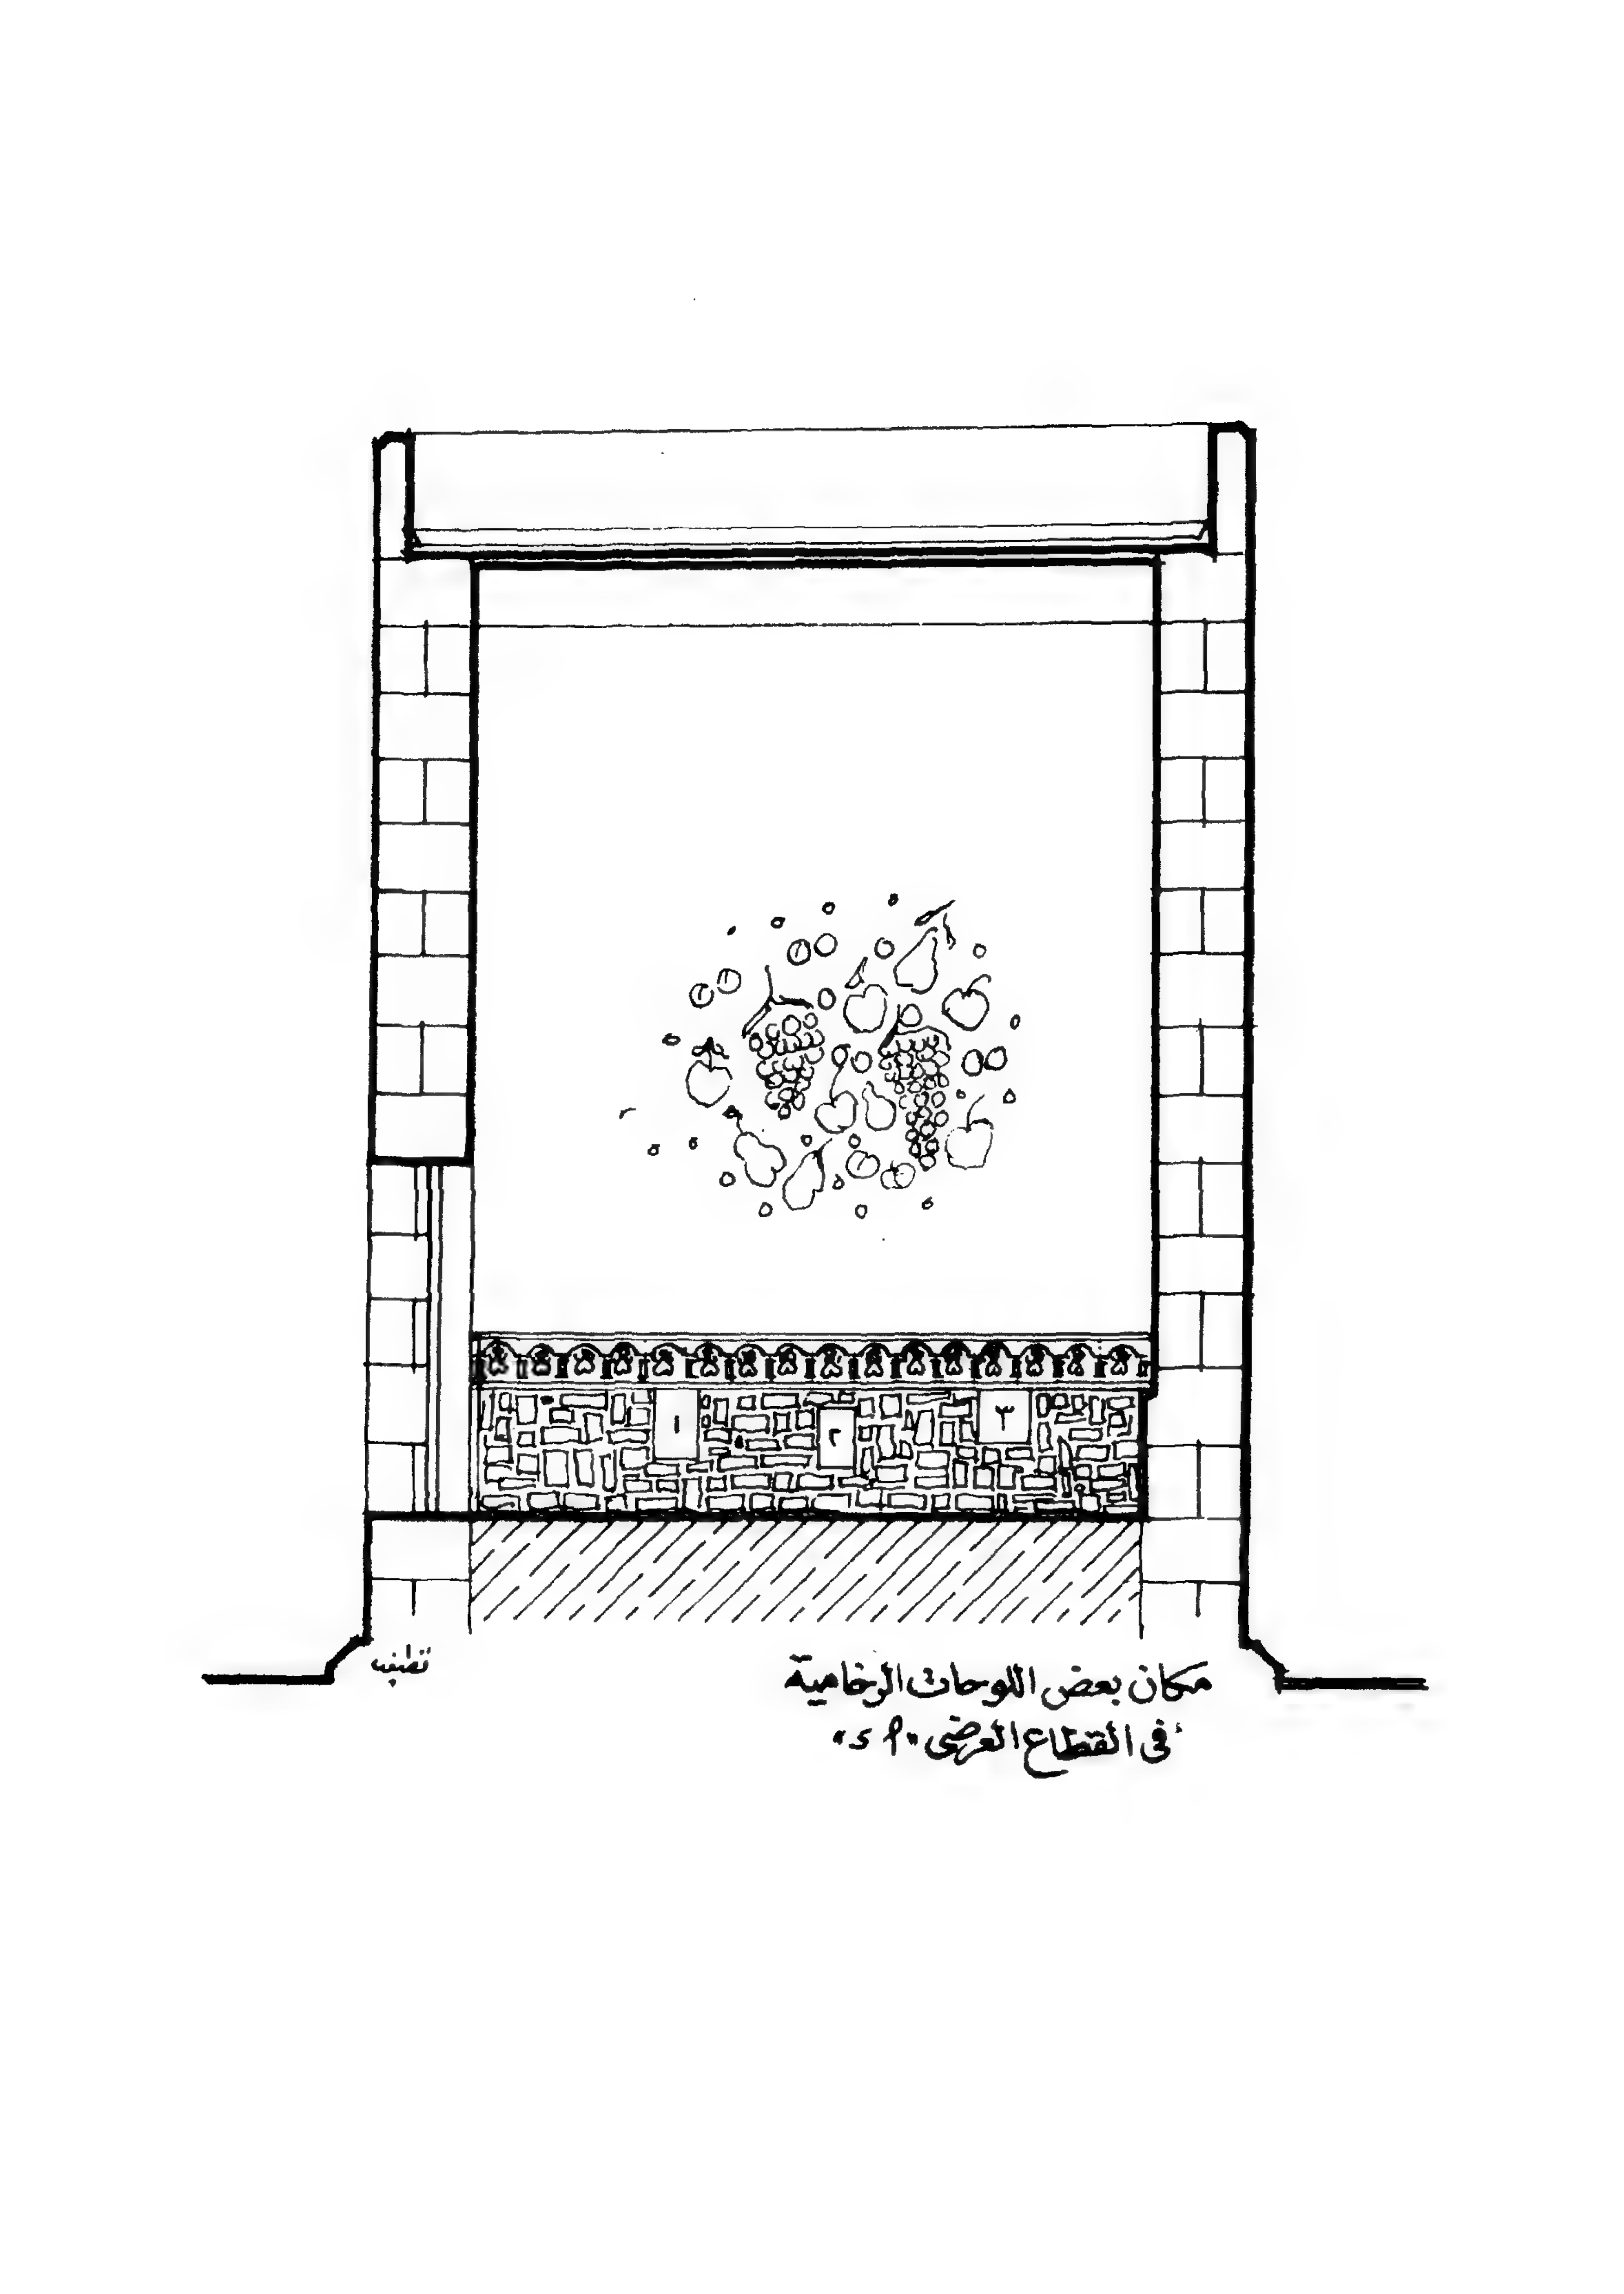 ١
٢
٣
مكان بعض اللوحات الرخامية
فى القطاع العرضى